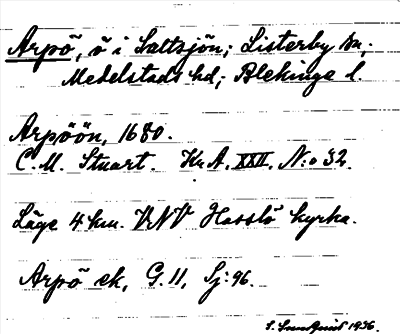 Arpö, ö i Saltsjön; Listerby sn,
Medelstads hd, Blekinge l.
Arpöön, 1680.
C. M. Stuart. Kr. A. XXII, N:o 32.
Läge 4 km. VNV Hasslö kyrka.
Arpö ek, G. 11, Sj: 96.
S. Sundquist 1936.